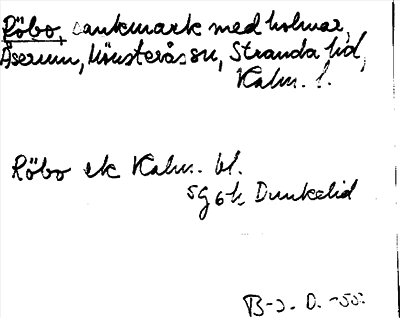 Röbo, sankmark med holmar,
Åserum, Mönsterås sn, Stranda hd,
Kalm. l.
Röbo ek Kalm. bl.
5g6h Dunkelid
B-s. D. -55.